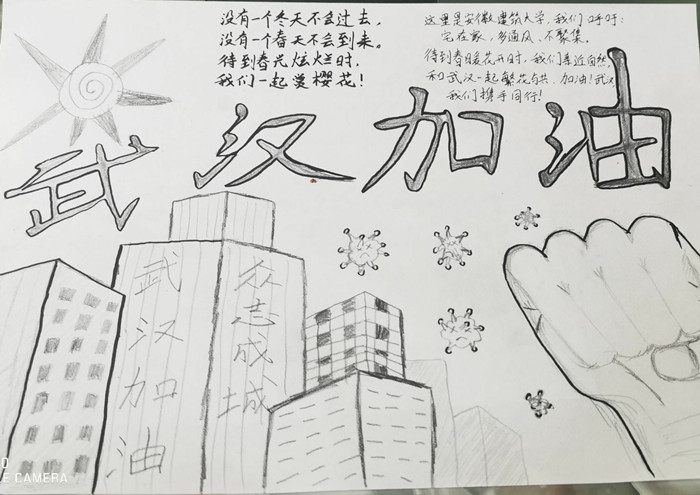 没有一个冬天不会过去，
没有一个春天不会到来。
待到春光炫烂时，
我们一起赏樱花！
这里是安徽建筑大学，我们呼吁：
宅在家、多通风、不聚集。
待到春暖花开时，我们亲近自然，
和武汉一起繁花与共，加油！武汉
我们携手同行！
武汉加油
武汉加油
众志成城
E CAMERA